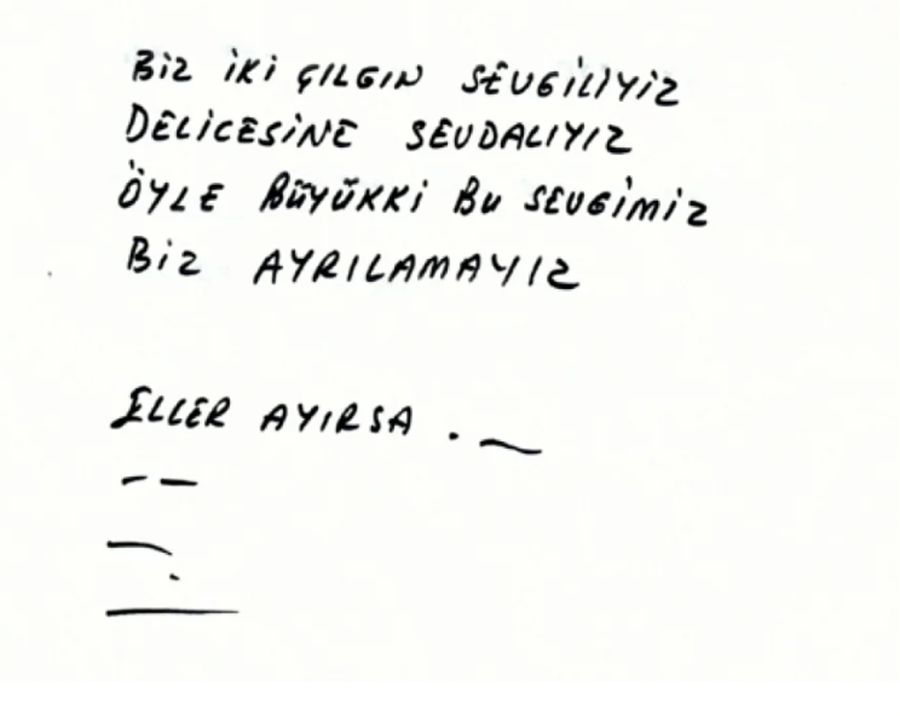 BİZ İKİ ÇILGIN SEVGİLİYİZ
DELİCESİNE SEVDALIYIZ
ÖYLE BÜYÜKKİ BU SEVGİMİZ
BİZ AYRILAMAYIZ
ELLER AYIRSA . —
— —
— .
—